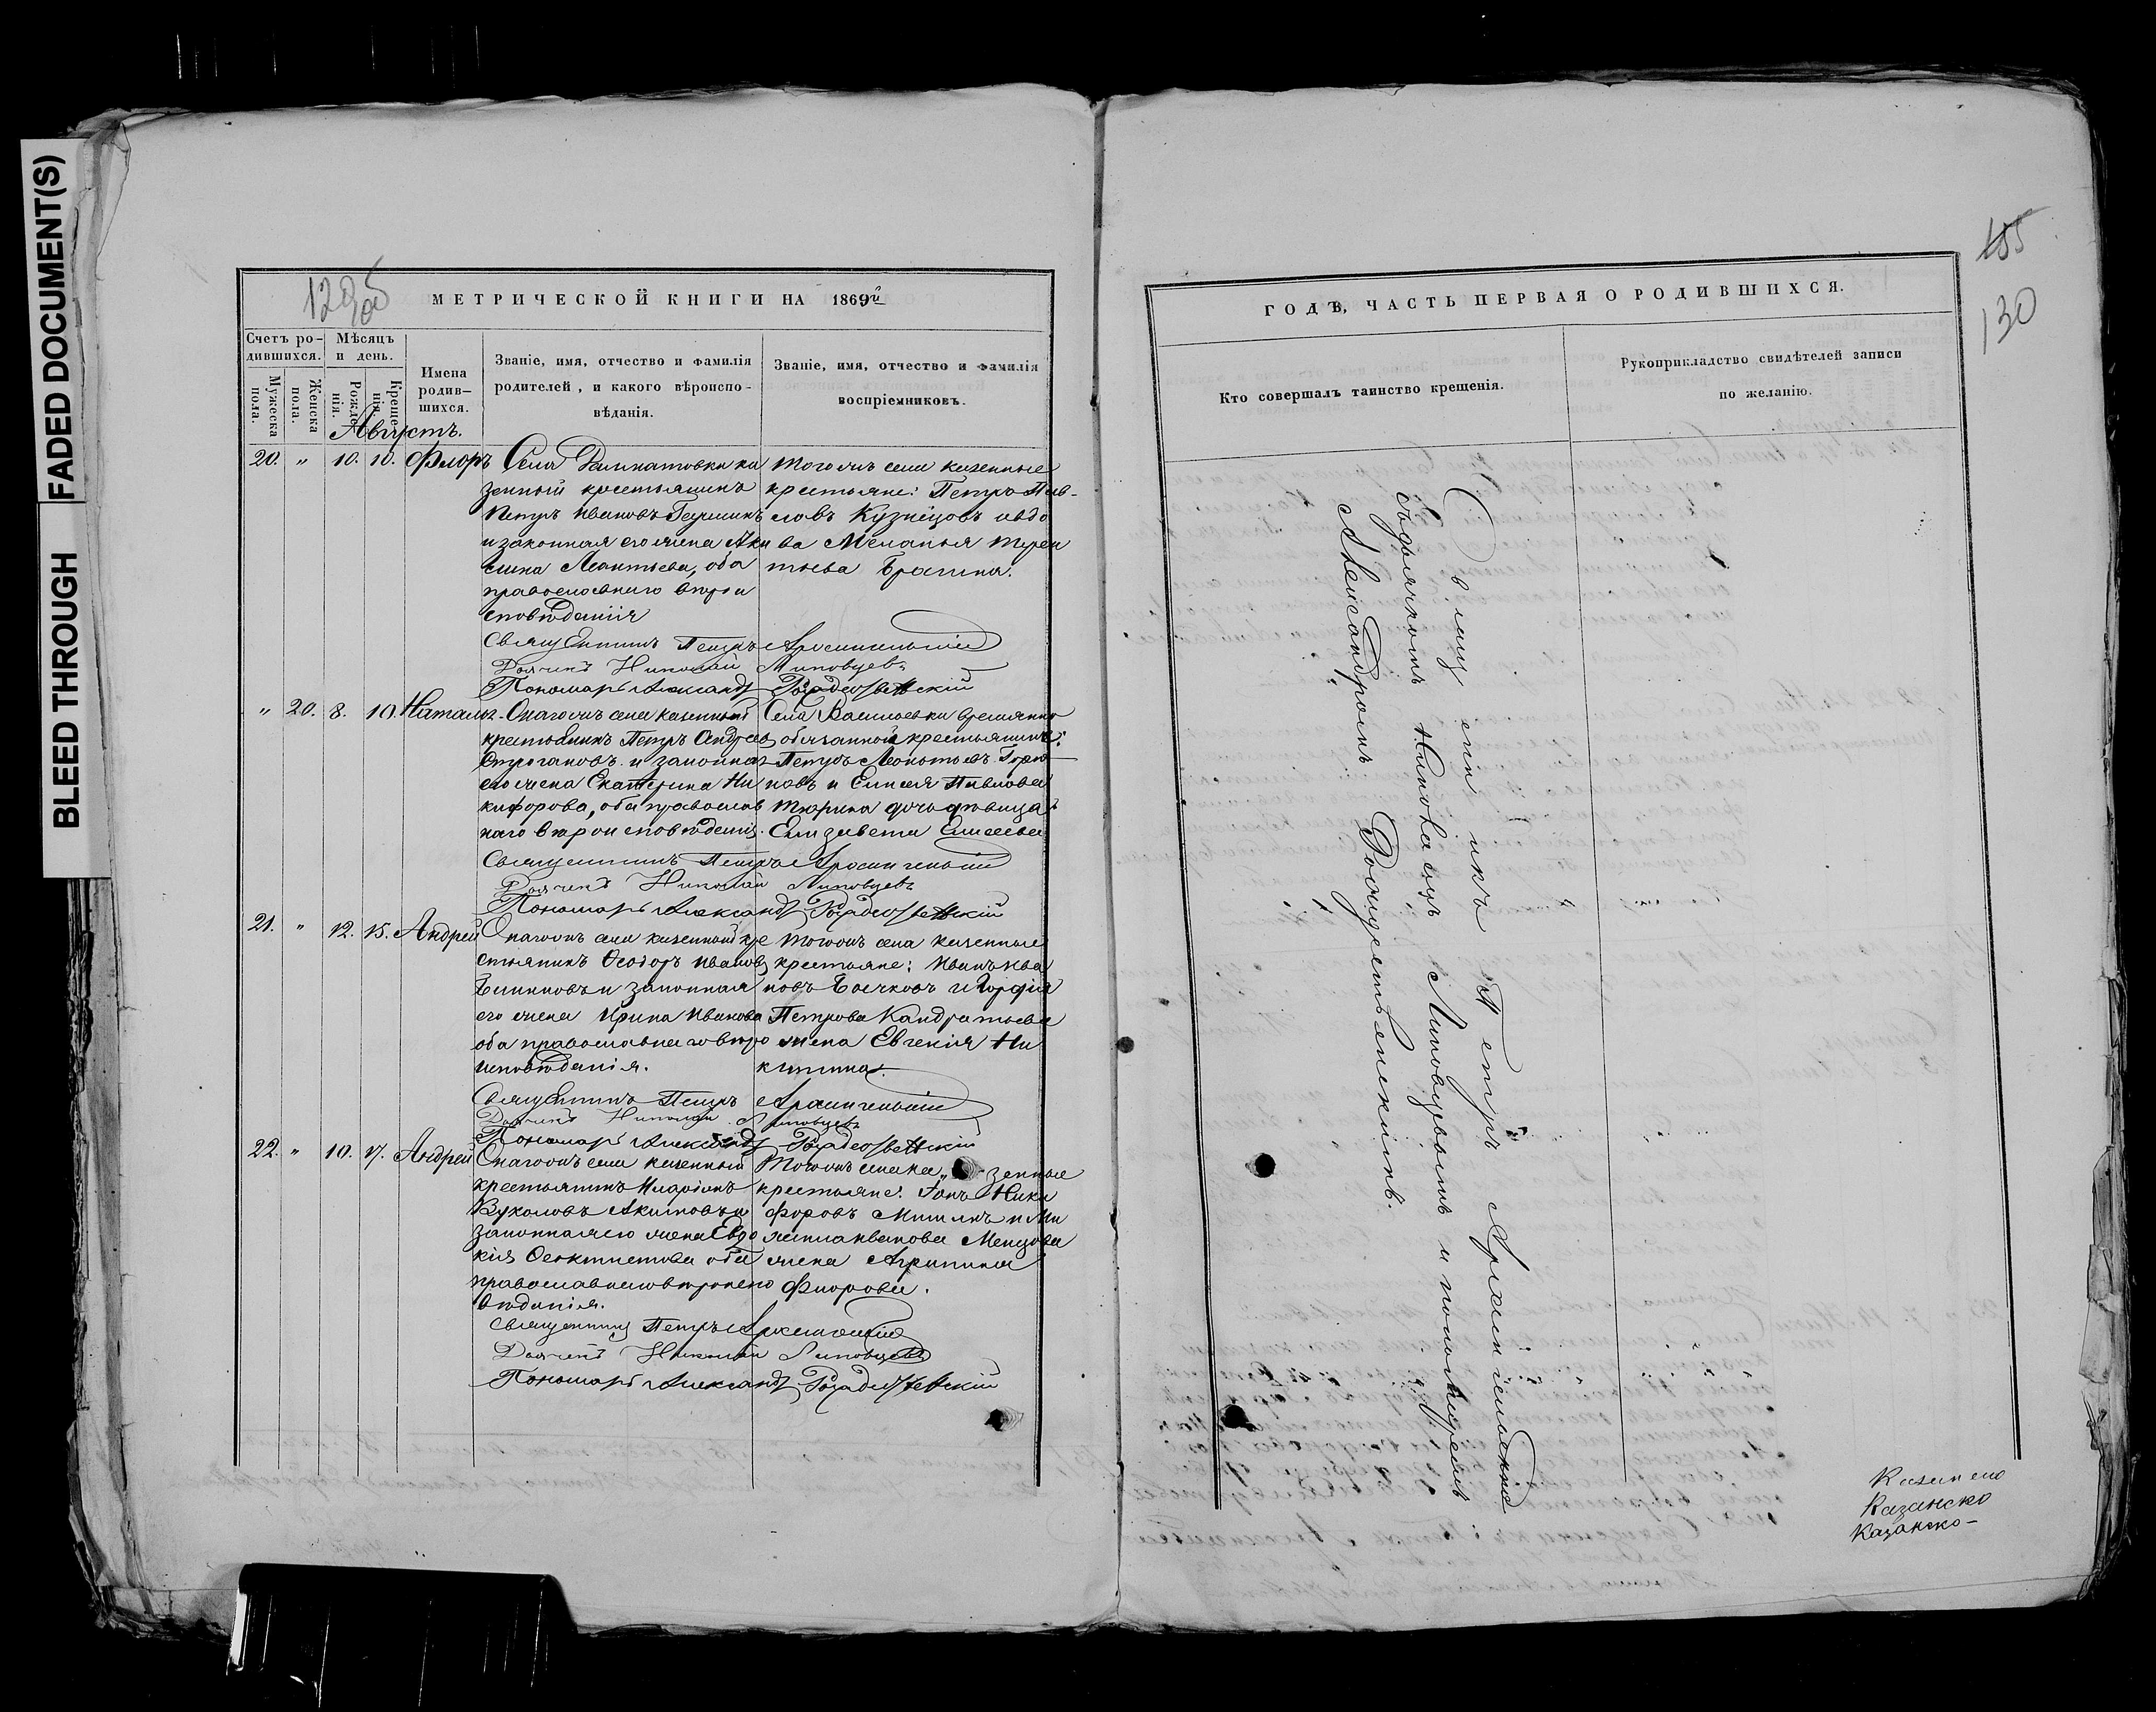 BLEED THROUGH
FADED DOCUMENT(S)
129об
МЕТРИЧЕСКОЙ КНИГИ НА 1869й
Счетъ ро-
дившихся.
Мужеска
пола.
Женска
пола.
Мѣсяцъ
и день.
Рожде-
нія.
Креще-
нія.
Имена
родив-
шихся.
Званіе, имя, отчество и фамилія
родителей, и какого вѣроиспо-
вѣданія.
Званіе, имя, отчество и фамилія
воспріемниковъ.
Августъ.
20. " 10. 10. Флоръ
Села Далматовки ка
зенный крестьянинъ
Петръ Ивановъ
и законная его жена Аку
лина Леонтьева, оба
православнаго вѣрои
сповѣданія
тогожъ села казенные
крестьяне: Петръ Пав-
ловъ Кузнецовъ и вдо
ва Меланья Терен
тьева Брагина.
Священникъ Петръ
Дьячекъ Николай Липовцевъ
Пономарь Александръ Рождественскій
" 20. 8. 10. Наталья.
Онагожъ села казенный
крестьянинъ Петръ Андреев
Строгановъ и законная
его жена Екатерина Ни
кифорова, оба православ
наго вѣроисповѣданія.
Села Васильевки временно
обязанной крестьянинъ:
Петръ Леонтьевъ
новъ и Елисея Павлова
Тюрина дочь дѣвица
Елизавета Елисеева
Священникъ Петръ
Дьячекъ Николай Липовцевъ
Пономарь Александръ Рождественскій
21. " 12. 15. Андрей
Онагожъ села казенный кре
стьянинъ Ѳеодоръ Ивановъ
и законная
его жена Ирина Иванова
оба православнаго вѣро
исповѣданія.
тогожъ села казенные
крестьяне: Иванъ Ива
новъ Бычковъ и
Петрова Кандратьева
жена Евгенія Ни
китина.
Священникъ Петръ
Дьячекъ Николай Липовцевъ
Пономарь Александръ Рождественскій
22. " 10. 17. Андрей
Онагожъ села казенный
крестьянинъ Иларіонъ
Вуколовъ Акимовъ и
законная его жена Евдо
кія Ѳеоктистова оба
православнаго вѣроиспо
вѣданія.
тогожъ села ка„зенные
крестьяне: Іонъ Ники
форовъ и Ми
Иванова
жена Агрипина
Флорова.
Священникъ Петръ
Дьячекъ Николай Липовцевъ
Пономарь Александръ Рождественскій
155
130
ГОДЪ, ЧАСТЬ ПЕРВАЯ О РОДИВШИХСЯ.
Кто совершалъ таинство крещенія.
Рукоприкладство свидѣтелей записи
по желанію.
Священникъ Петръ
съ дьячкомъ Николаемъ Липовцевымъ и пономаремъ
Александромъ Рождественскимъ.
Казанско
Казанско
Казанско-